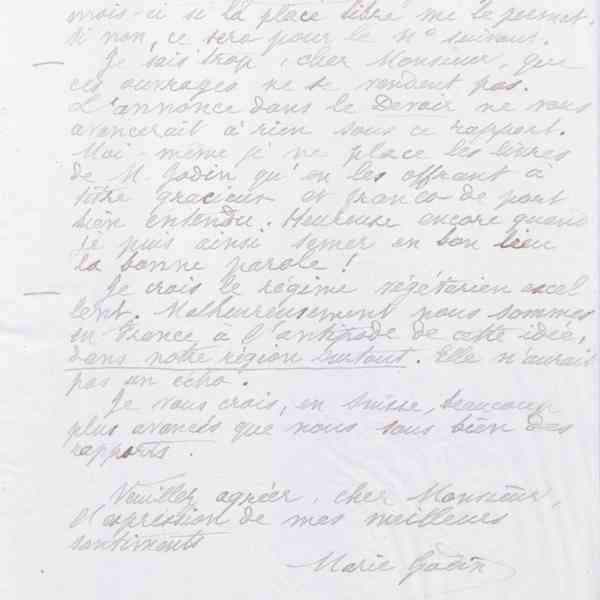 mois-ci si la place libre me le permet.
Si non, ce sera pour le n° suivant.
Je sais trop, cher Monsieur, que
ces ouvrages ne se vendent pas.
L'annonce dans le Devoir ne vous
avancerait à rien sous ce rapport.
Moi-même je ne place les livres
de M. Godin qu'en les offrant à
titre gracieux et franco de port
bien entendu. Heureuse encore quand
je puis ainsi semer en bon lieu
la bonne parole !
Je crois le régime végétarien excel
lent. Malheureusement nous sommes
en France à l'antipode de cette idée,
dans notre région surtout. Elle n'aurait
pas un écho.
Je vous crois, en Suisse, beaucoup
plus avancés que nous sous bien des
rapports.
Veuillez agréer, cher Monsieur,
l'expression de mes meilleurs
sentiments
Marie Godin